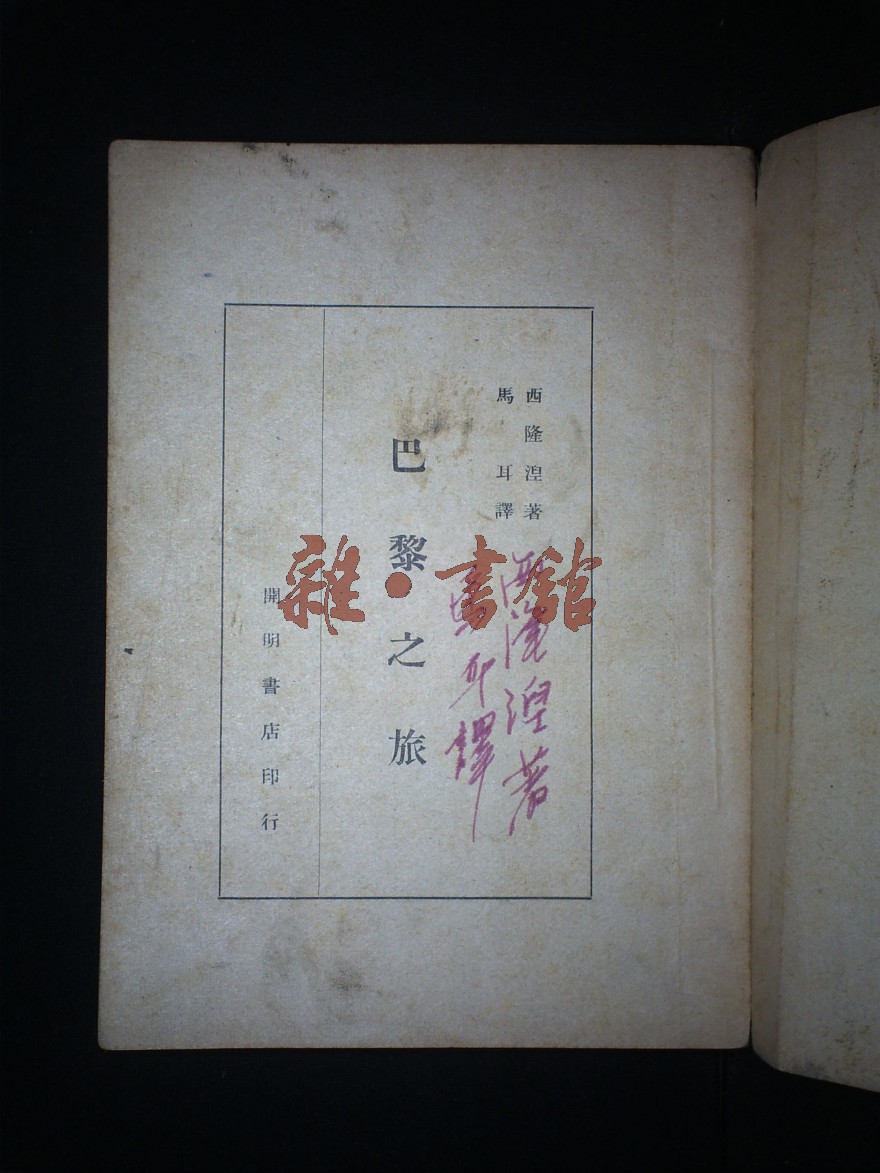 西隆湼著
馬耳譯
巴黎之旅
開明書店印行
西隆湼著
馬耳譯
雜·書館